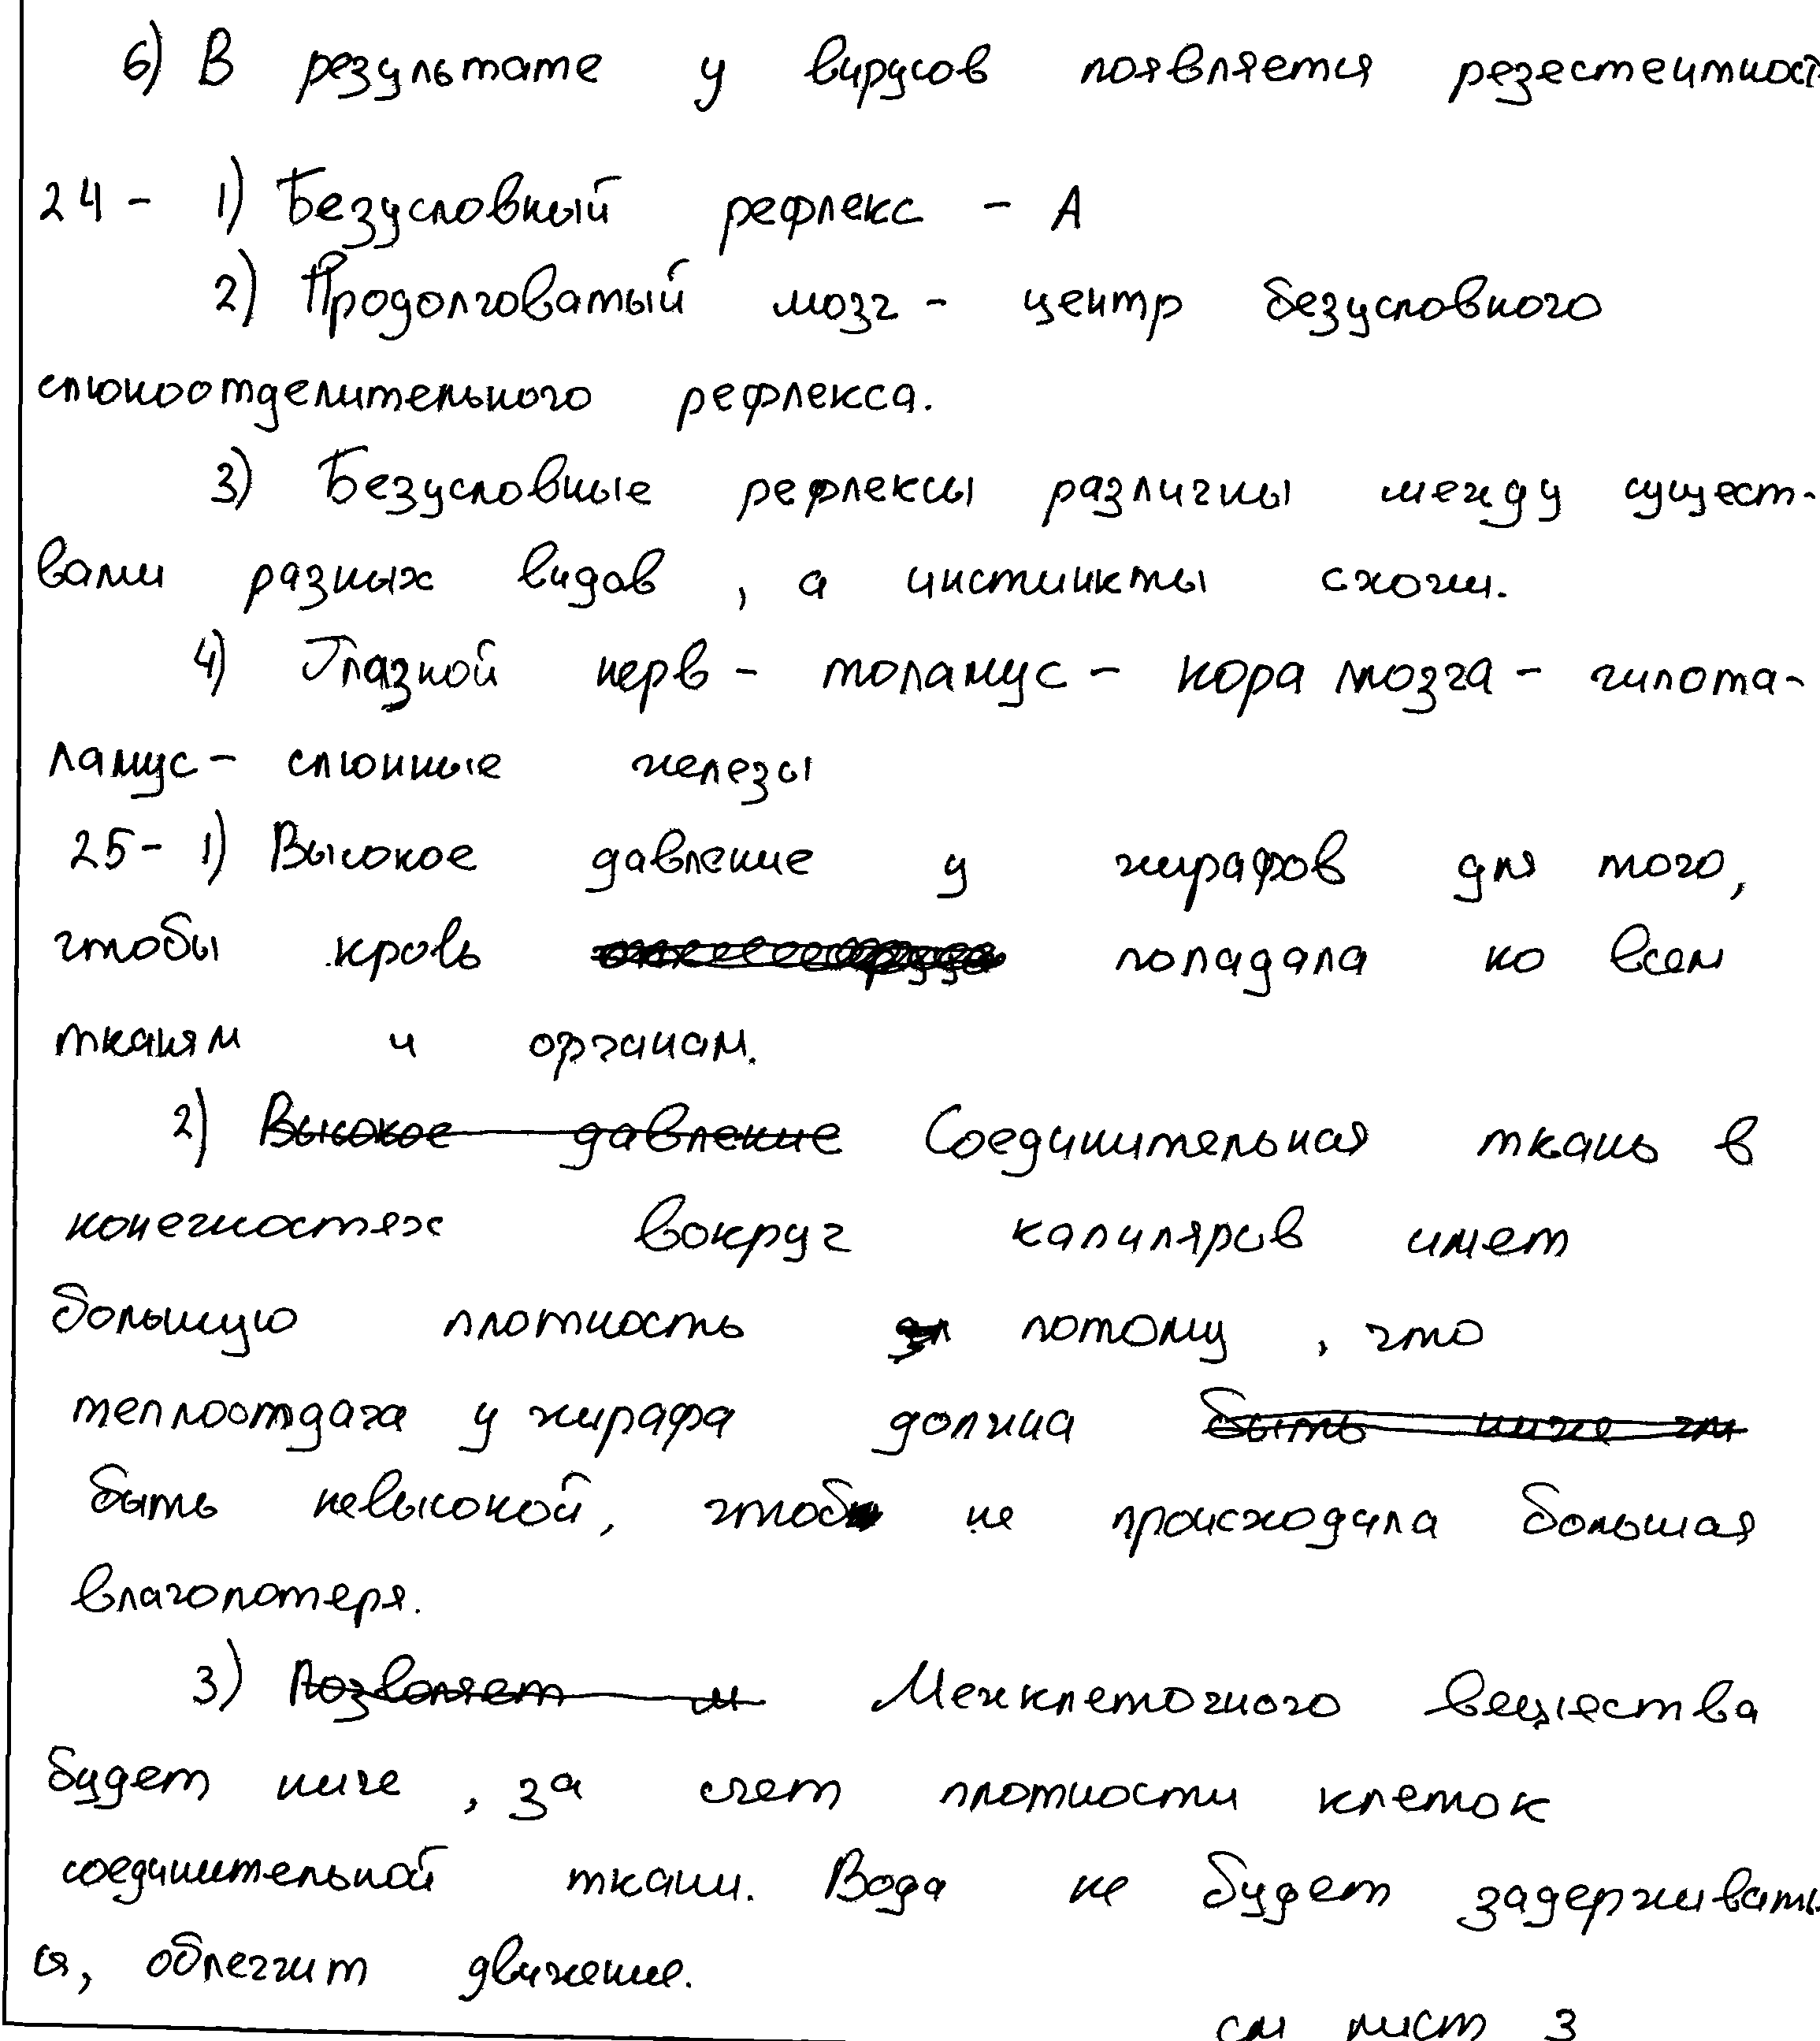 6) В результате у вирусов появляется резестентност
24 - 1) Безусловный рефлекс - А
2) Продолговатый мозг - центр безусловного
слюноотделительного рефлекса.
3) Безусловные рефлексы различны между сущест-
вами разных видов, а инстинкты схожи.
4) Глазной нерв - толамус - кора мозга - гипота-
ламус - слюнные железы
25 - 1) Высокое давление у жирафов для того,
чтобы кровь попадала ко всем
тканям и органам.
2) Высокое давление Соединительная ткань в
конечностях вокруг капиляров имет
большую плотность потому, что
теплоотдача у жирафа должна быть ниже чм
быть невысокой, чтобы не происходила большая
влагопотеря.
3) Позволяет м Межклеточного вещества
будет ниже, за счет плотности клеток
соединительной ткани. Вода не будет задерживать
ся, облегчит движение.
см лист 3